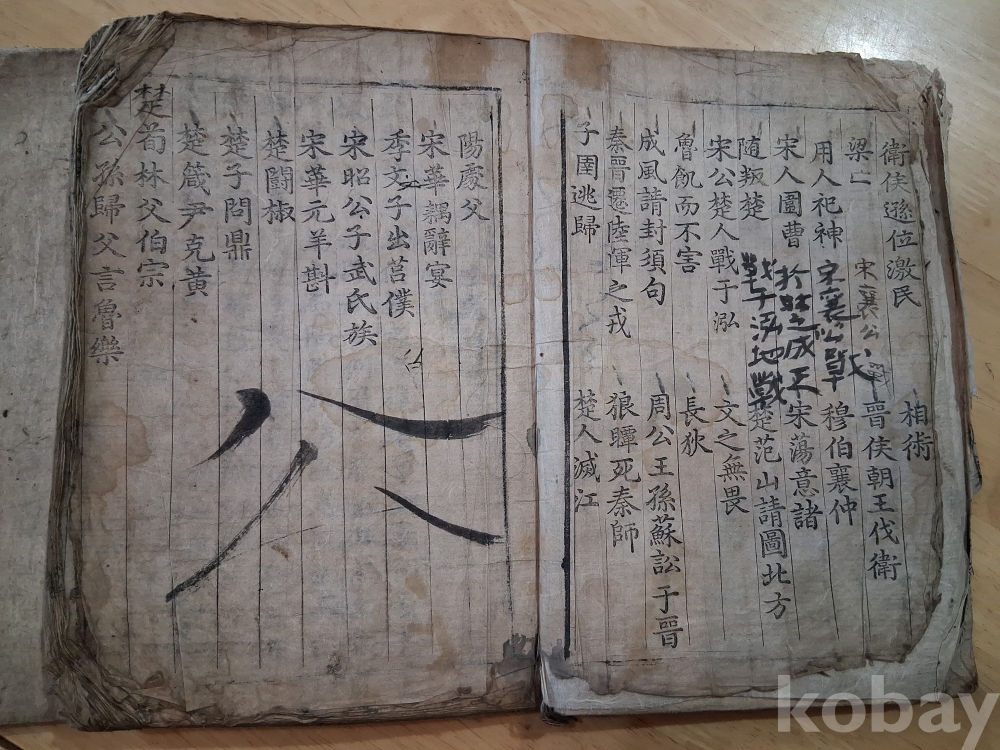 衛侯遜位激民
梁亡
用人祀神
宋人圍曹
随叛楚
宋公楚人戰于泓
魯飢而不害
成風請封須句
秦晉遷陸渾之戎
子圉逃歸
宋襄公
宋襄公
戰于泓地戰
相術
晉侯朝王伐衛
穆伯襄仲
宋蕩意諸
楚范山請圖北方
文之無畏
長狄
周公王孫蘇訟于晉
狼瞫死秦師
楚人滅江
陽處父
宋華耦辭宴
季文子出莒僕
宋昭公子武氏族
宋華元羊斟
楚鬪椒
楚子問鼎
楚箴尹克黄
楚荀林父伯宗
公孫歸父言魯樂
kobay